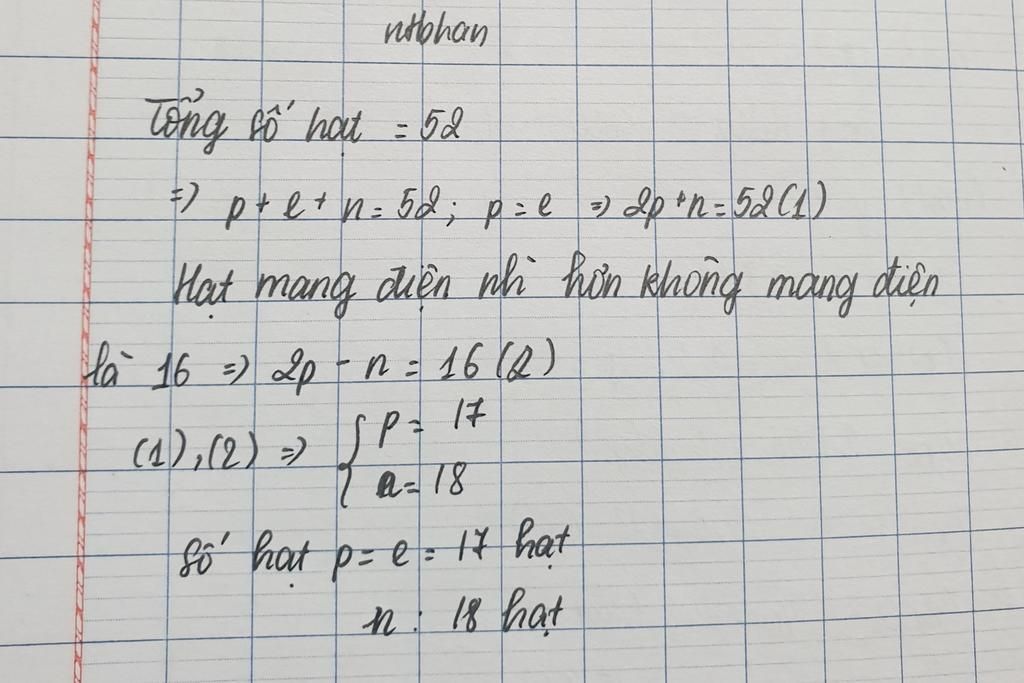 nthhan
Tổng số hạt = 52
=> p + e + n = 52; p = e => 2p + n = 52 (1)
Hạt mang điện nhì hơn không mang điện
là 16 => 2p - n = 16 (2)
(1), (2) => { p = 17
n = 18
Số hạt p = e = 17 hạt
n : 18 hạt